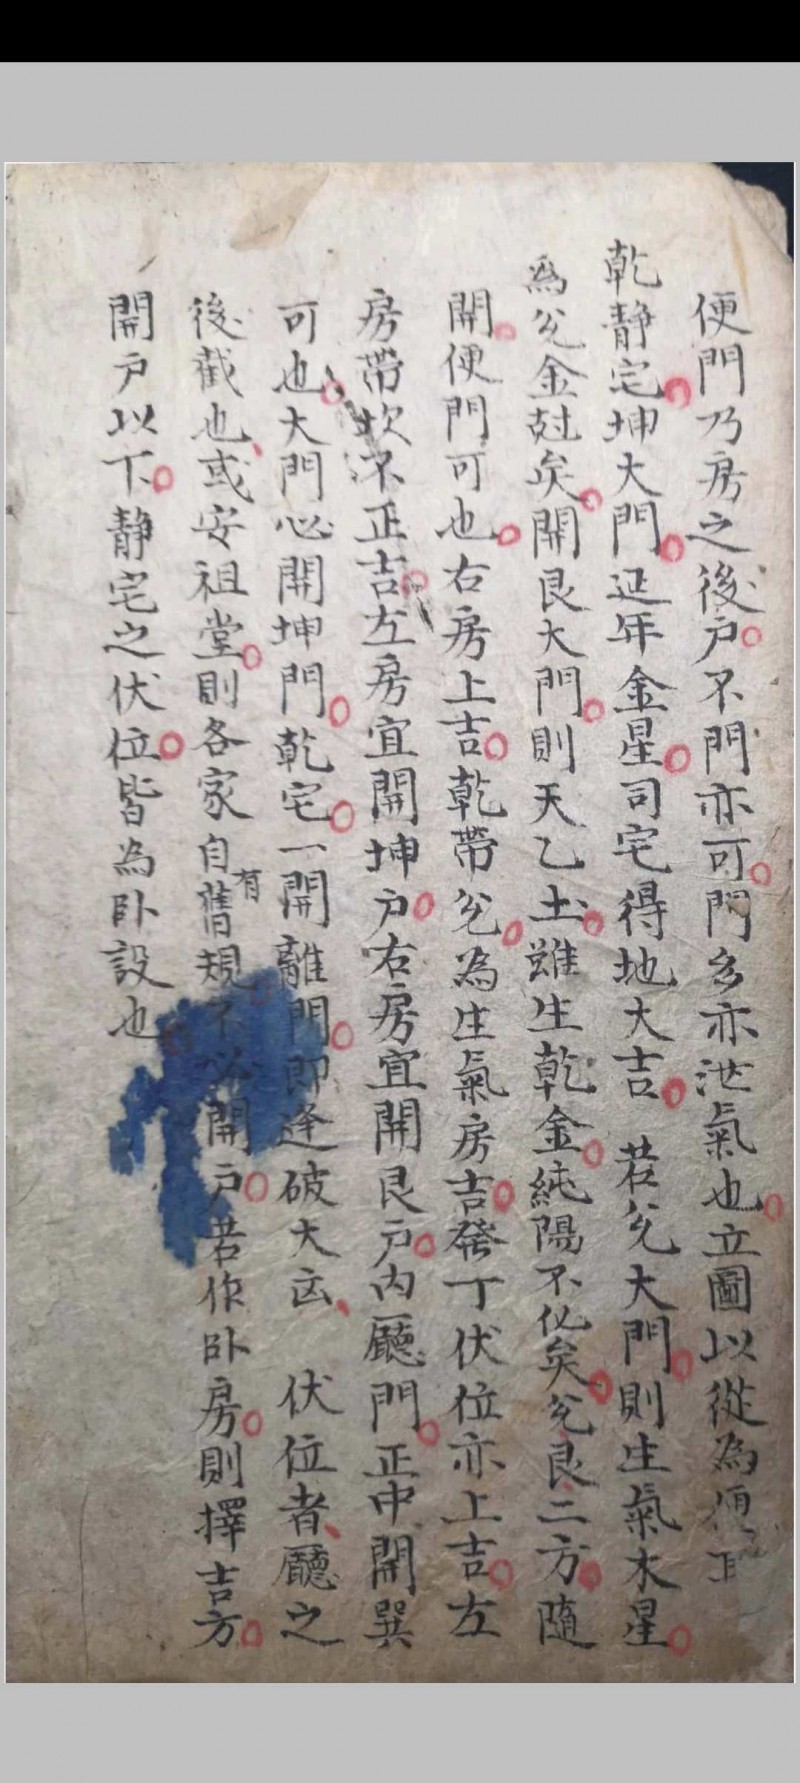 便門乃房之後户不門亦可門多亦泄氣也立圖以從為便耳
乾靜宅坤大門延年金星司宅得地大吉 若兊大門則生氣木星
為兊金尅矣開艮大門則天乙土雖生乾金純陽不化矣兊艮二方隨
開便門可也右房上吉乾帶兊為生氣房吉發丁伏位亦上吉左
房帶坎不正吉左房宜開坤户右房宜開艮户内廳門正中開巽
可也大門必開坤門乾宅一開離門即逢破大凶 伏位者廳之
後截也或安祖堂則各家自有舊規不必開户若作卧房則擇吉方
開户以下靜宅之伏位皆為卧設也